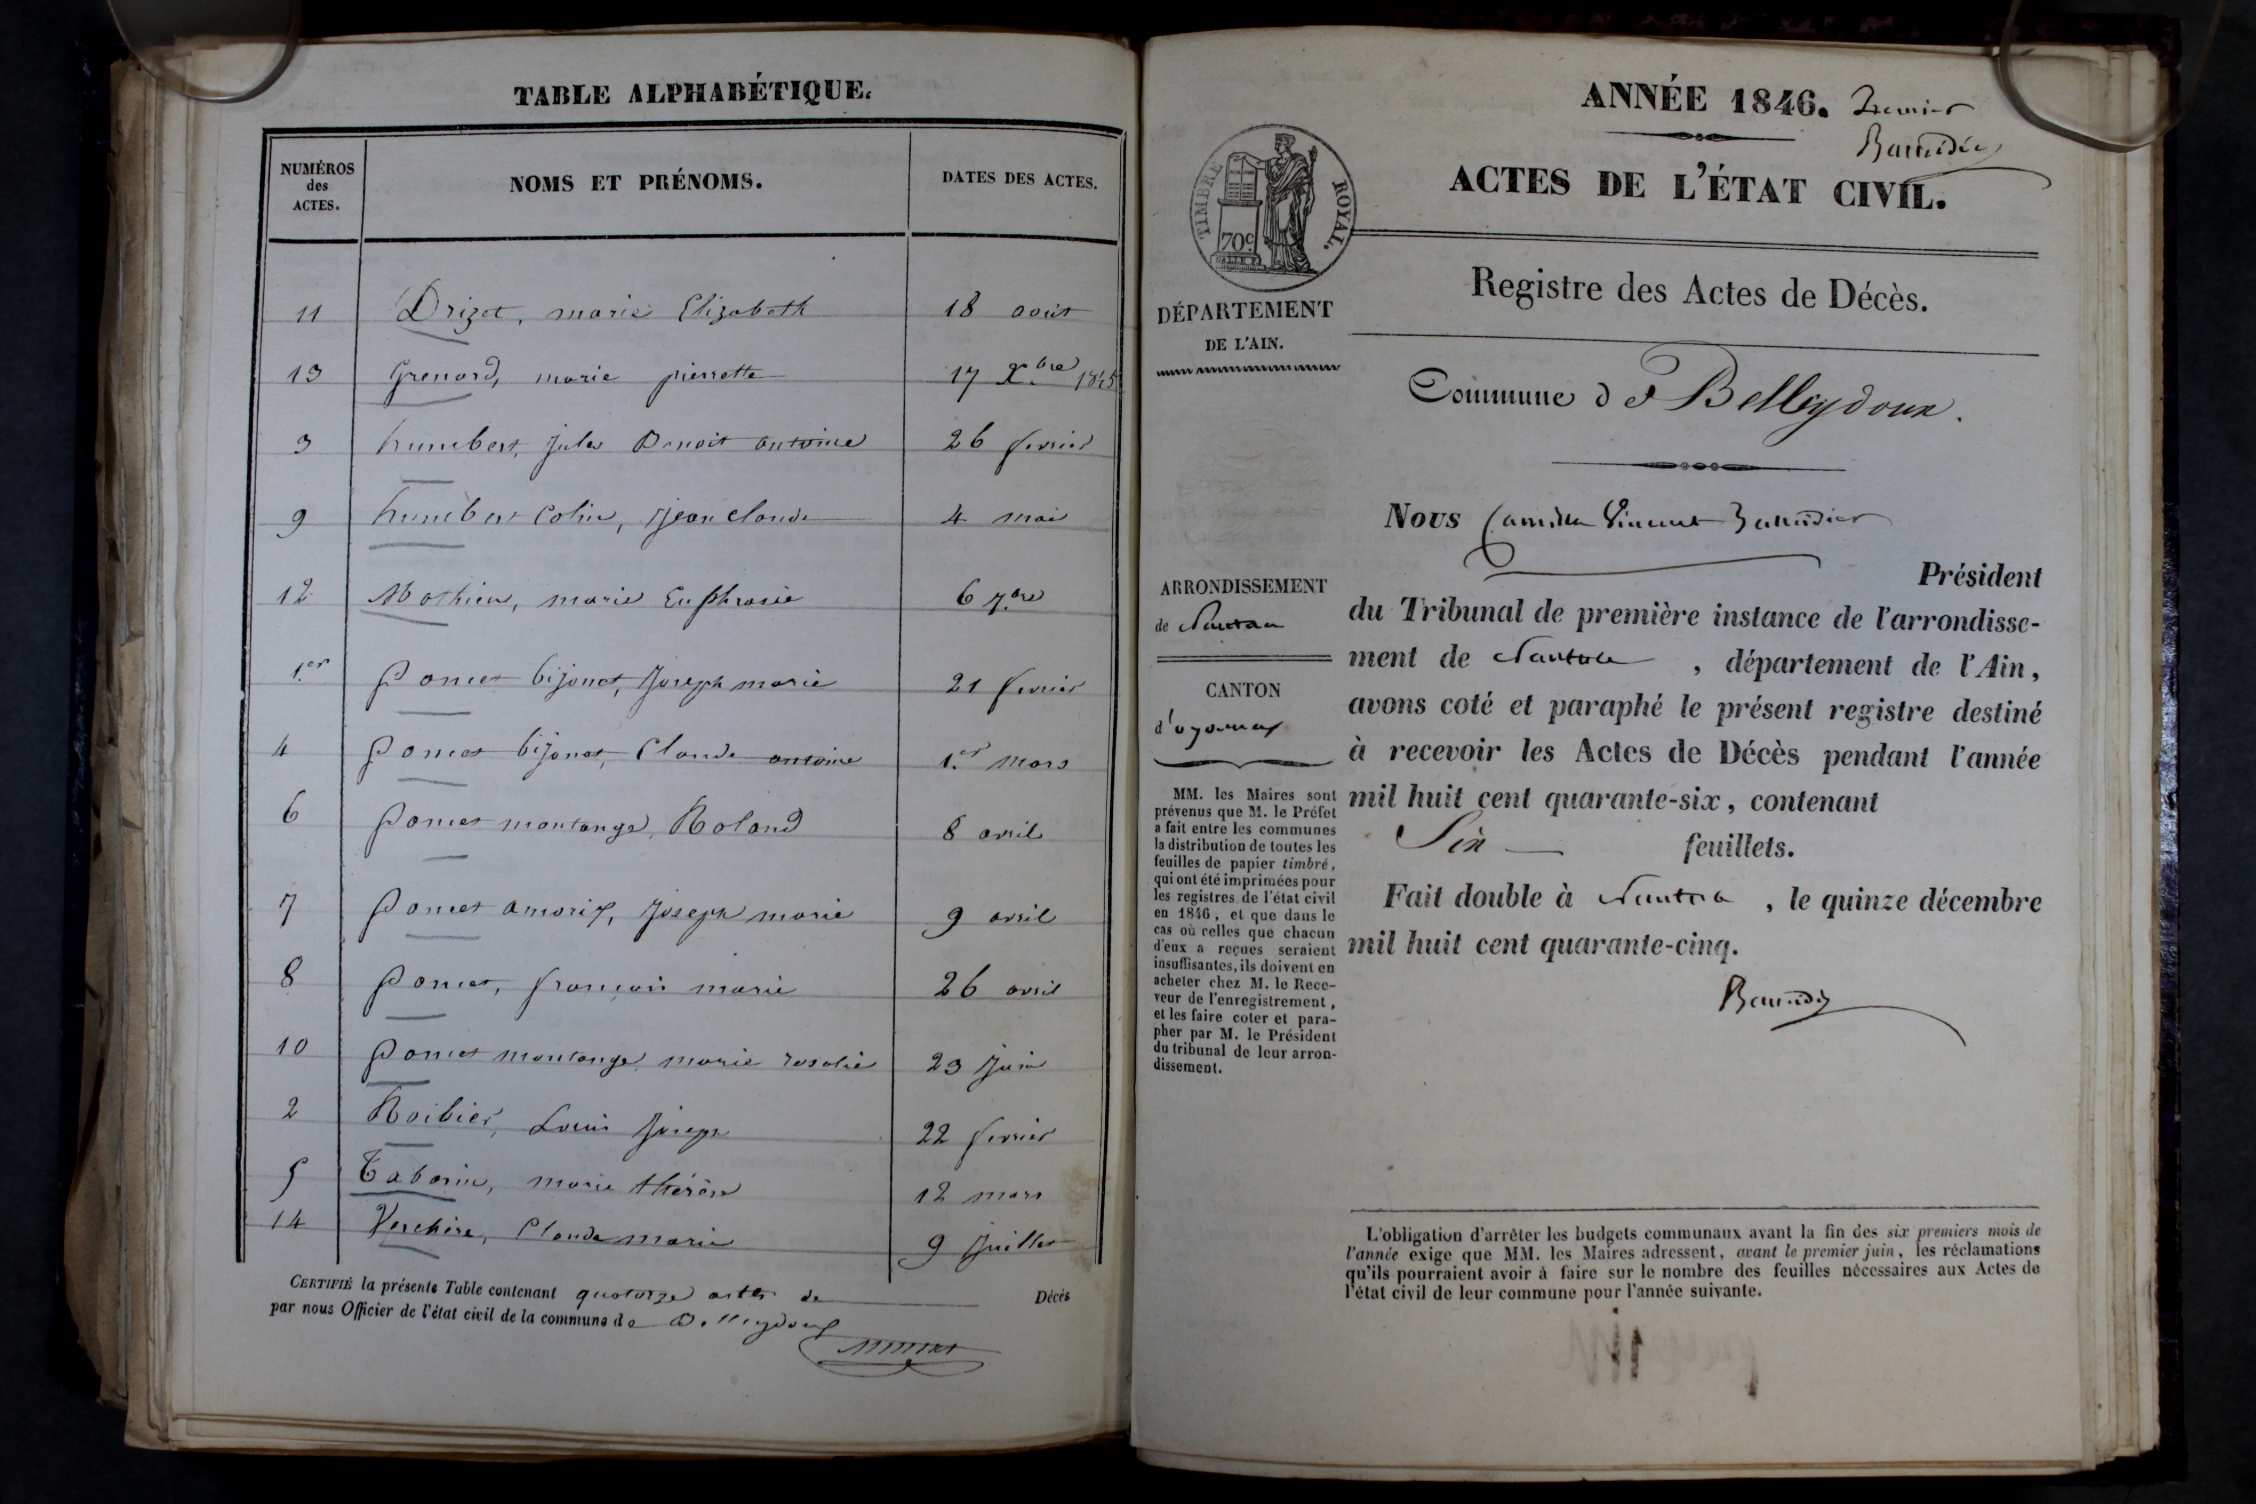 TABLE ALPHABÉTIQUE.
NUMÉROS des ACTES. NOMS ET PRÉNOMS. DATES DES ACTES.
11 Drizet, marie Elizabeth 18 août
13 Grenard, marie pierrette 17 Xbre 1845
3 humbert, jules Benoit antoine 26 fevrier
9 humbert Colin, jean claude 4 mai
12 Mathieu, marie Euphrasie 6 7bre
1.er Poncet bijonet, joseph marie 21 fevrier
4 Poncet bijonet, Claude antoine 1.er mars
6 Poncet montange, Roland 8 avril
7 Poncet amoriz, joseph marie 9 avril
8 Poncet, françois marie 26 avril
10 Poncet montange marie rosalie 23 juin
2 Roibier, Louis joseph 22 fevrier
5 Taborin, marie thérèse 12 mars
14 Verchère, Claude marie 9 juillet
CERTIFIÉ la présente Table contenant quatorze actes de Décès
par nous Officier de l'état civil de la commune de Belleydoux
ANNÉE 1846. Premier
ACTES DE L'ÉTAT CIVIL.
TIMBRE ROYAL.
70c
Registre des Actes de Décès.
DÉPARTEMENT
DE L'AIN.
Commune de Belleydoux.
ARRONDISSEMENT
de Nantua
CANTON
d'oyonnax
MM. les Maires sont
prévenus que M. le Préfet
a fait entre les communes
la distribution de toutes les
feuilles de papier timbré,
qui ont été imprimées pour
les registres de l'état civil
en 1846, et que dans le
cas où celles que chacun
d'eux a reçues seraient
insuffisantes, ils doivent en
acheter chez M. le Rece-
veur de l'enregistrement,
et les faire coter et para-
pher par M. le Président
du tribunal de leur arron-
dissement.
Nous Camille Vincent
Président
du Tribunal de première instance de l'arrondisse-
ment de Nantua, département de l'Ain,
avons coté et paraphé le présent registre destiné
à recevoir les Actes de Décès pendant l'année
mil huit cent quarante-six, contenant
Six feuillets.
Fait double à Nantua, le quinze décembre
mil huit cent quarante-cinq.
L'obligation d'arrêter les budgets communaux avant la fin des six premiers mois de
l'année exige que MM. les Maires adressent, avant le premier juin, les réclamations
qu'ils pourraient avoir à faire sur le nombre des feuilles nécessaires aux Actes de
l'état civil de leur commune pour l'année suivante.